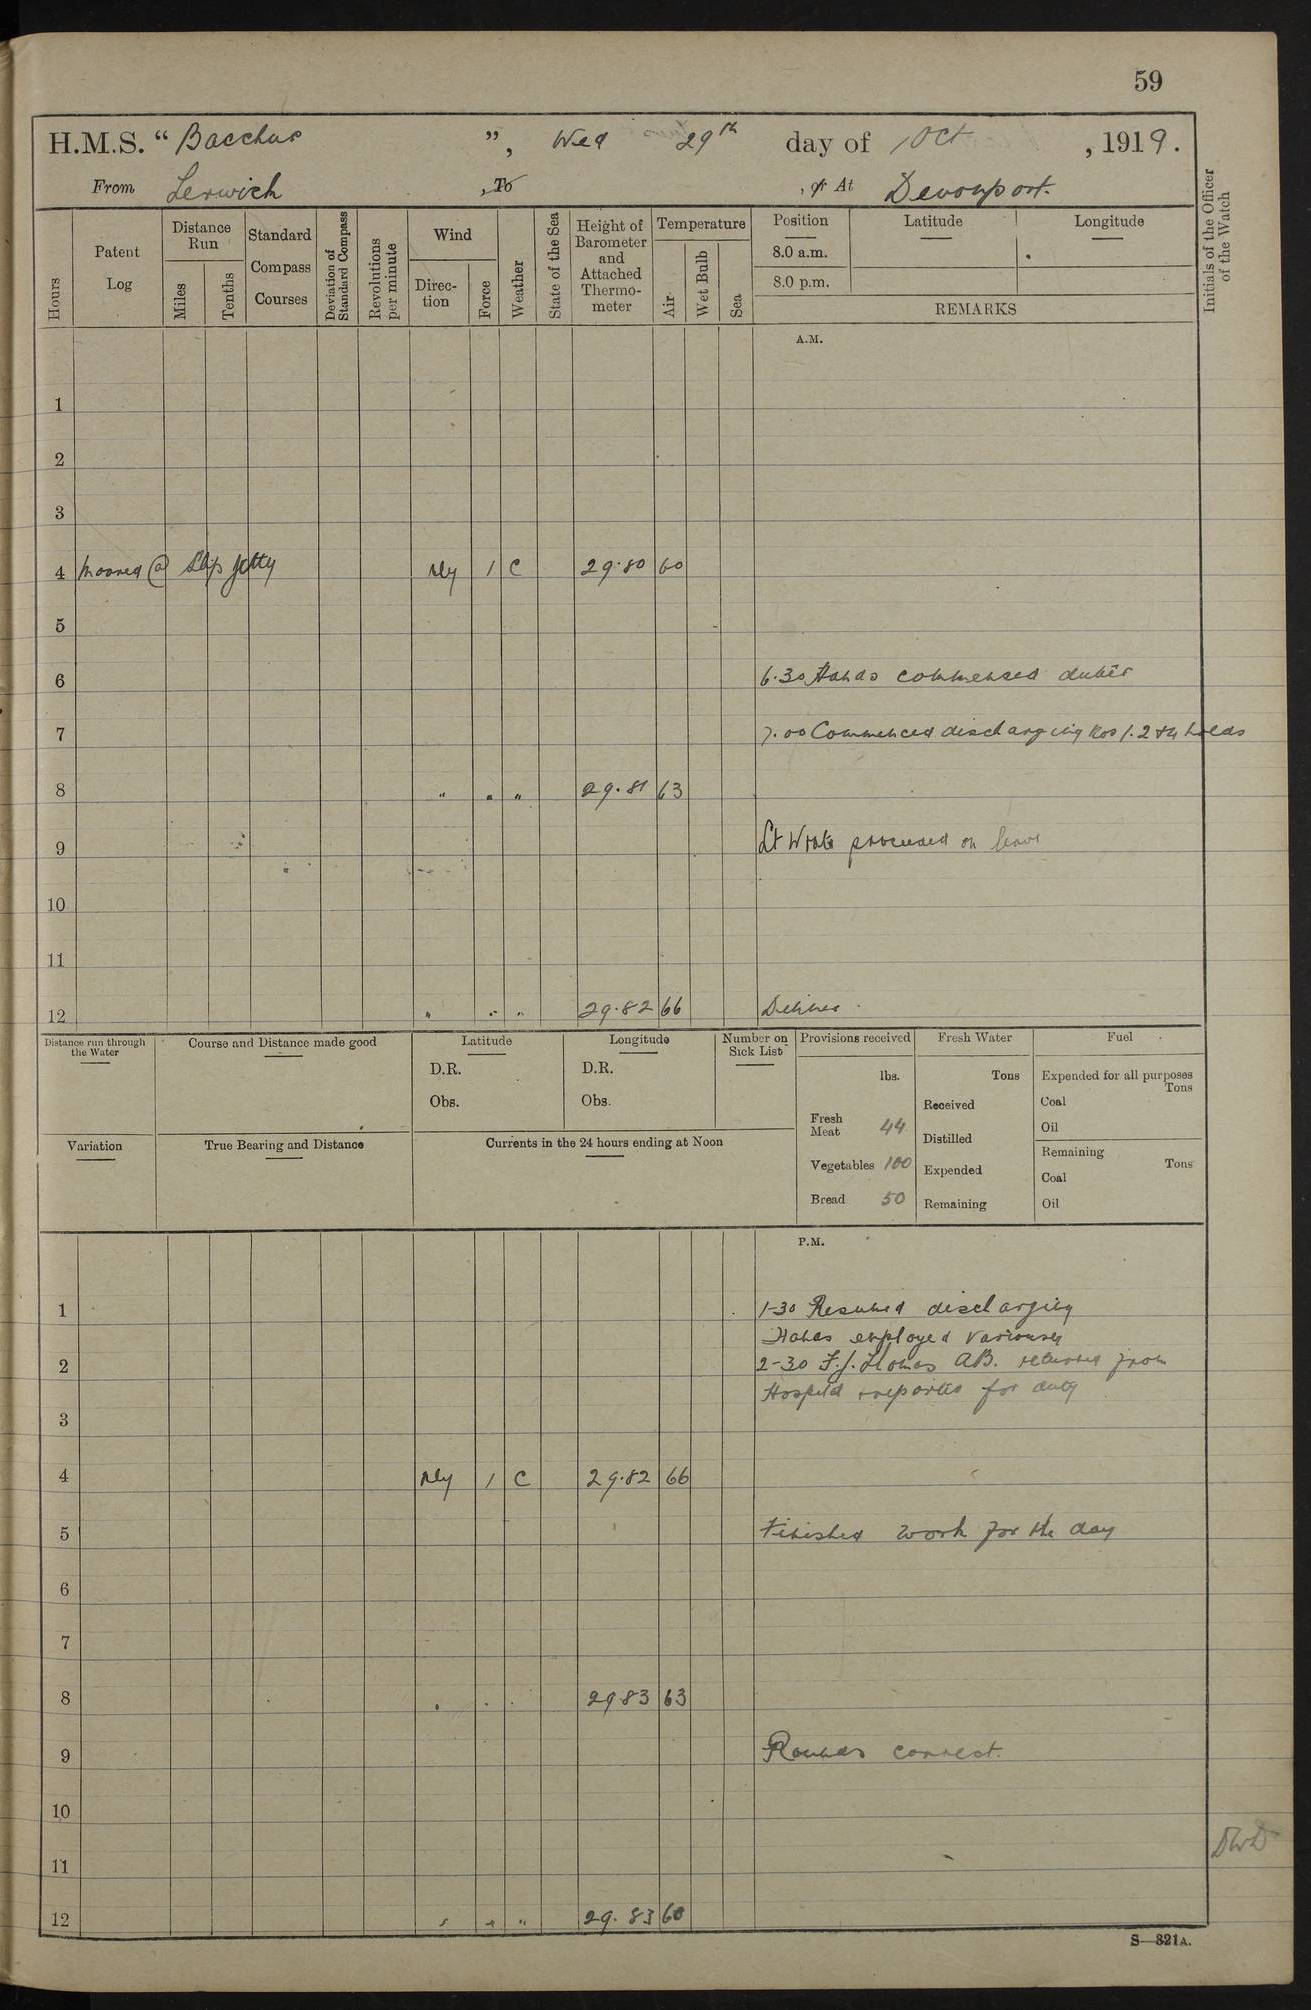 59
H.M.S. “ Bacchus ”, Wed 29th day of Oct , 1919.
From Lerwick , To , or At Devonport.
Hours
Patent Log
Distance Run
Miles
Tenths
Standard Compass Courses
Deviation of Standard Compass
Revolutions per minute
Wind
Direction
Force
Weather
State of the Sea
Height of Barometer and Attached Thermometer
Temperature
Air
Wet Bulb
Sea
Position Latitude Longitude
8.0 a.m.
8.0 p.m.
REMARKS
Initials of the Officer of the Watch
A.M.
1
2
3
4 Moored @ Slip Jetty Nly 1 C 29.80 60
5
6 6.30 Hands commenced duties
7 7.00 Commenced discharging Nos 1. 2 & 4 holds
8 " " " 29.81 63
9 Lt proceeded on leave
10
11
12 " " " 29.82 66 Dinner
Distance run through the Water
Course and Distance made good
Latitude
D.R.
Obs.
Longitude
D.R.
Obs.
Number on Sick List
Provisions received
lbs.
Fresh Meat 44
Vegetables 100
Bread 50
Fresh Water
Tons
Received
Distilled
Expended
Remaining
Fuel
Expended for all purposes
Tons
Coal
Oil
Remaining
Tons
Coal
Oil
Variation
True Bearing and Distance
Currents in the 24 hours ending at Noon
P.M.
1 1-30 Resumed discharging
Hands employed variously
2 2-30 F.J. AB. returned from
Hospital & reported for duty
3
4 Nly 1 C 29.82 66
5 Finished work for the day
6
7
8 " " " 29 83 63
9 Rounds correct.
10
11
12 " " " 29. 83 60
S—321A.